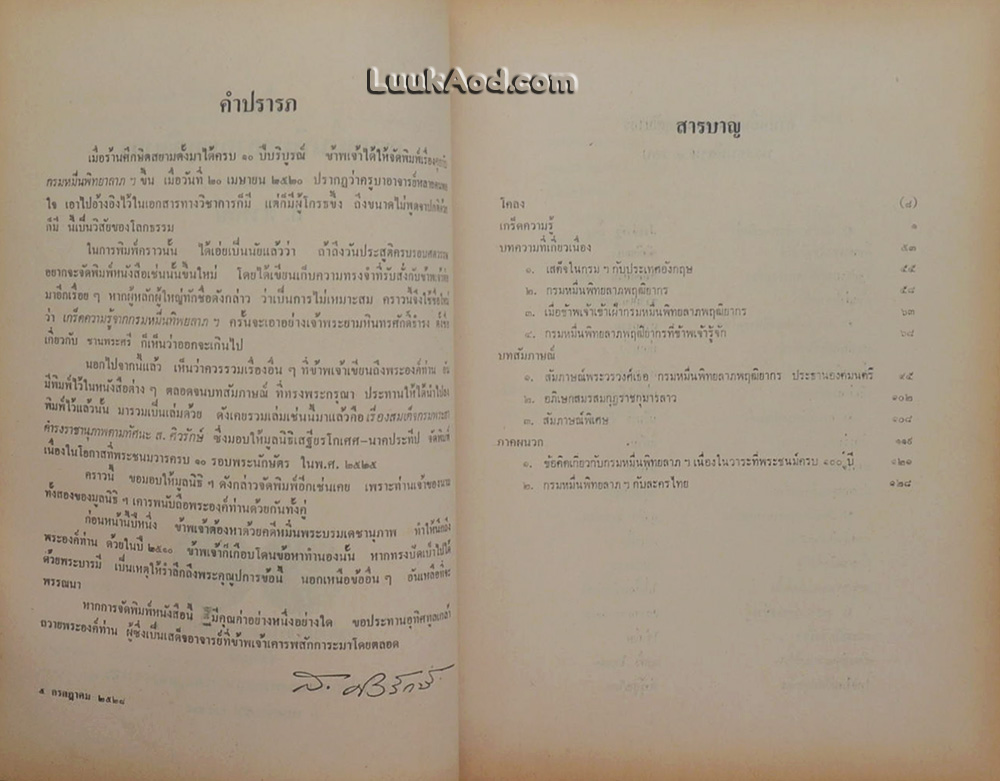 LuukAod.com
คำปรารภ
เมื่อร้านศึกษิตสยามตั้งมาได้ครบ ๑๐ ปีบริบูรณ์ ข้าพเจ้าได้ให้จัดพิมพ์เรื่อง
กรมหมื่นพิทยาลาภ ฯ ขึ้น เมื่อวันที่ ๒๐ เมษายน ๒๕๒๐ ปรากฏว่าครูบาอาจารย์หลายคนพอ
ใจ เอาไปอ้างอิงไว้ในเอกสารทางวิชาการก็มี แต่ก็มีผู้โกรธขึ้ง ถึงขนาดไม่พูดจาปกติด้วย
ก็มี นี้เป็นวิสัยของโลกธรรม
ในการพิมพ์คราวนั้น ได้เอ่ยเป็นนัยแล้วว่า ถ้าถึงวันประสูติครบรอบศตวรรษ
อยากจะจัดพิมพ์หนังสือเช่นนั้นขึ้นใหม่ โดยได้เขียนเก็บความทรงจำที่รับสั่งกับข้าพเจ้าต่อ
มาอีกเรื่อย ๆ หากผู้หลักผู้ใหญ่ทักชื่อดังกล่าว ว่าเป็นการไม่เหมาะสม คราวนี้จึงใช้ชื่อใหม่
ว่า เกร็ดความรู้จากกรมหมื่นพิทยลาภ ฯ ครั้นจะเอาอย่างเจ้าพระยามหินทรศักดิ์ธำรง ตั้งชื่อ
เกี่ยวกับ ชานพระศรี ก็เห็นว่าออกจะเกินไป
นอกไปจากนี้แล้ว เห็นว่าควรรวมเรื่องอื่น ๆ ที่ข้าพเจ้าเขียนถึงพระองค์ท่าน อัน
มีพิมพ์ไว้ในหนังสือต่าง ๆ ตลอดจนบทสัมภาษณ์ ที่ทรงพระกรุณา ประทานให้ได้นำไปลง
พิมพ์ไว้แล้วนั้น มารวมเป็นเล่มด้วย ดังเคยรวมเล่มเช่นนี้มาแล้วคือ เรื่องสมเด็จกรมพระยา
ดำรงราชานุภาพตามทัศนะ ส. ศิวรักษ์ ซึ่งมอบให้มูลนิธิเสฐียรโกเศศ-นาคประทีป จัดพิมพ์
เนื่องในโอกาสที่พระชนมวารครบ ๑๐ รอบพระนักษัตร ในพ.ศ. ๒๕๒๕
คราวนี้ ขอมอบให้มูลนิธิ ฯ ดังกล่าวจัดพิมพ์อีกเช่นเคย เพราะท่านเจ้าของนาม
ทั้งสองของมูลนิธิ ฯ เคารพนับถือพระองค์ท่านด้วยกันทั้งคู่
ก่อนหน้านี้ปีหนึ่ง ข้าพเจ้าต้องหาด้วยคดีหมิ่นพระบรมเดชานุภาพ ทำให้นึกถึง
พระองค์ท่าน ด้วยในปี ๒๕๑๐ ข้าพเจ้าก็เกือบโดนข้อหาทำนองนั้น หากทรงปัดเป่าไปได้
ด้วยพระบารมี เป็นเหตุให้รำลึกถึงพระคุณูปการข้อนี้ นอกเหนือข้ออื่น ๆ อันเหลือที่จะ
พรรณนา
หากการจัดพิมพ์หนังสือนี้ มีคุณค่าอย่างหนึ่งอย่างใด ขอประทานอุทิศทูลเกล้า
ถวายพระองค์ท่าน ผู้ซึ่งเป็นเสด็จอาจารย์ที่ข้าพเจ้าเคารพสักการะมาโดยตลอด
ส. ศิวรักษ์
๕ กรกฎาคม ๒๕๒๘
สารบาญ
โคลง (๘)
เกร็ดความรู้ ๑
บทความที่เกี่ยวเนื่อง ๕๓
๑. เสด็จในกรม ฯ กับประเทศอังกฤษ ๕๕
๒. กรมหมื่นพิทยลาภพฤฒิยากร ๕๘
๓. เมื่อข้าพเจ้าเข้าเฝ้ากรมหมื่นพิทยลาภพฤฒิยากร ๖๓
๔. กรมหมื่นพิทยลาภพฤฒิยากรที่ข้าพเจ้ารู้จัก ๖๘
บทสัมภาษณ์
๑. สัมภาษณ์พระวรวงศ์เธอ กรมหมื่นพิทยลาภพฤฒิยากร ประธานองคมนตรี ๙๕
๒. อภิเษกสมรสมกุฎราชกุมารลาว ๑๐๒
๓. สัมภาษณ์พิเศษ ๑๐๘
ภาคผนวก ๑๑๙
๑. ข้อคิดเกี่ยวกับกรมหมื่นพิทยลาภ ฯ เนื่องในวาระที่พระชนม์ครบ ๑๐๐ ปี ๑๒๑
๒. กรมหมื่นพิทยลาภ ฯ กับละครไทย ๑๒๘